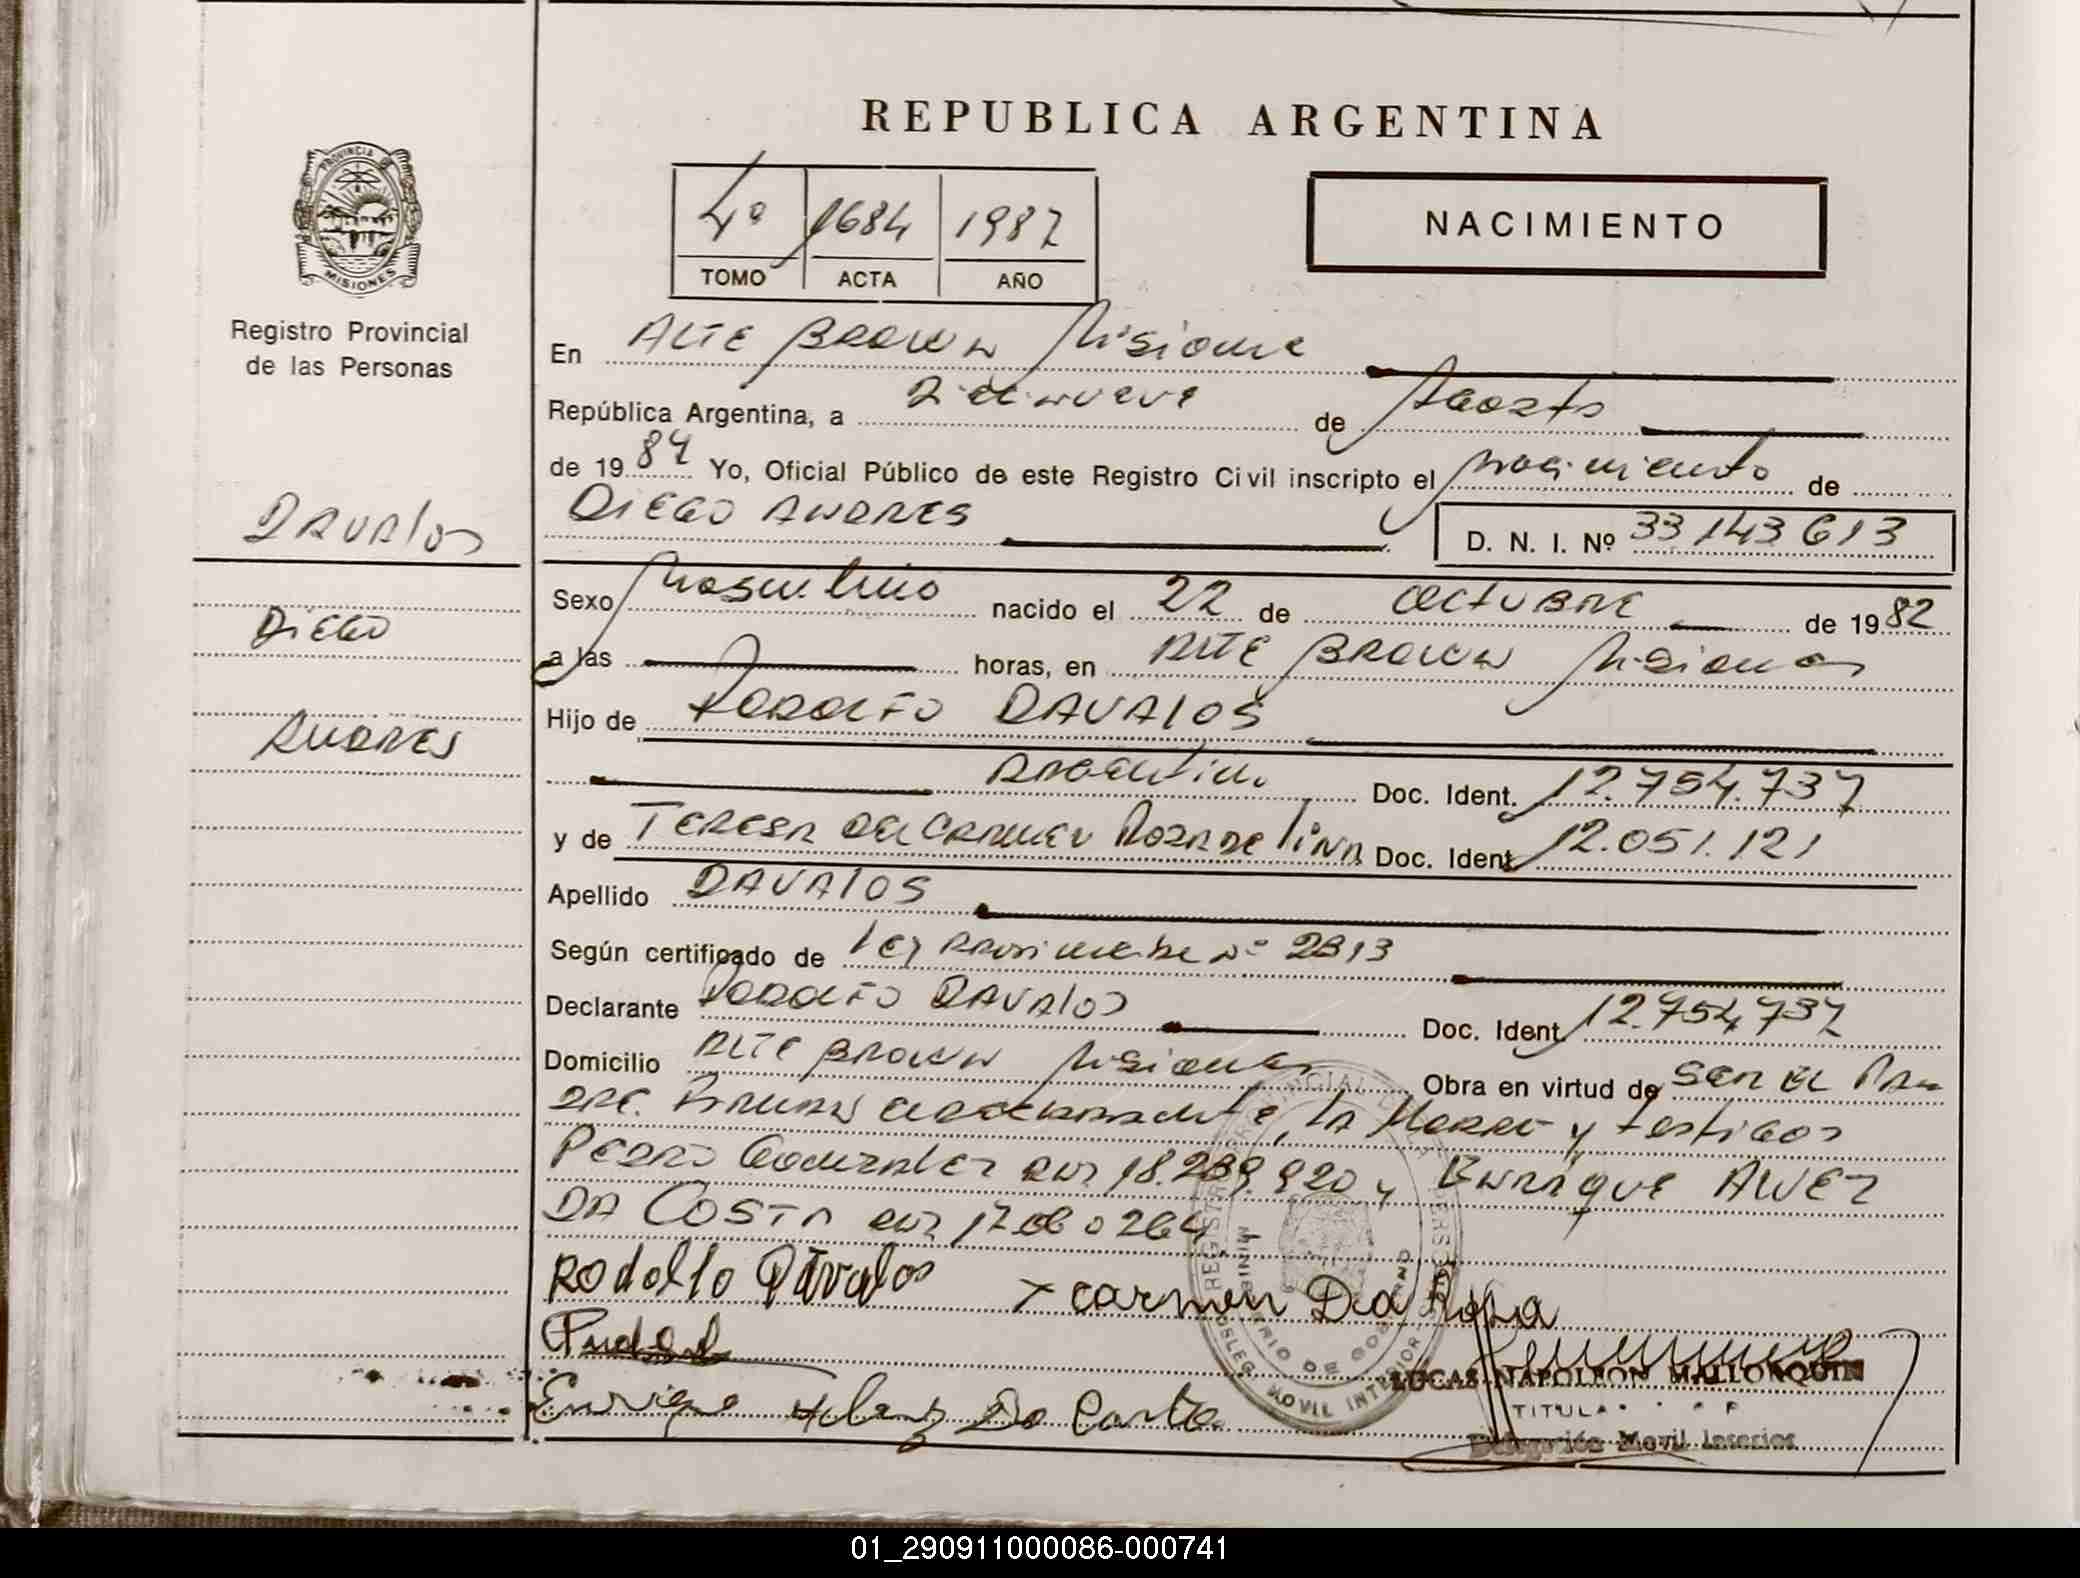 REPUBLICA ARGENTINA
PROVINCIA
MISIONES
Registro Provincial
de las Personas
4º 1684 1987
TOMO ACTA AÑO
NACIMIENTO
En ALTE BROWN Misiones
República Argentina, a Diecinueve de Agosto
de 1987 Yo, Oficial Público de este Registro Civil inscripto el nacimiento de
DIEGO ANDRES D. N. I. Nº 33143613
DAVALOS
DIEGO
ANDRES
Sexo Masculino nacido el 22 de OCTUBRE de 1982
a las horas, en ALTE BROWN Misiones
Hijo de RODOLFO DAVALOS
Argentino Doc. Ident. 12.754.737
y de TERESA DEL CARMEN DA ROSA Doc. Ident. 12.051.121
Apellido DAVALOS
Según certificado de Ley Nº 2813
Declarante RODOLFO DAVALOS Doc. Ident. 12.754,737
Domicilio ALTE BROWN Misiones Obra en virtud de SER EL PA
DRE. Firman el declarante, la Madre y testigos
PEDRO Gonzalez DNI 18.239.920 y Enrique ALVEZ
DA COSTA DNI 17.060264
Rodolfo Dávalos x Carmen Da Rosa
Enrique Da Costa
LUCAS NAPOLEON MALLORQUIN
TITULAR
Delegación Movil Interior
REGISTRO PROVINCIAL DE LAS PERSONAS
MINISTERIO DE GOBIERNO
DELEG. MOVIL INTERIOR
01_290911000086-000741